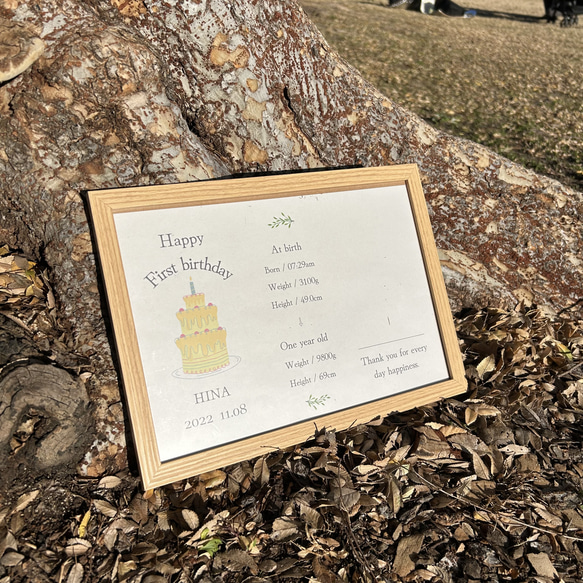 Happy
First birthday
HINA
2022 11.08
At birth
Born / 07:29am
Weight / 3100g
Height / 49.0cm
One year old
Weight / 9800g
Height / 69cm
Thank you for every
day happiness.